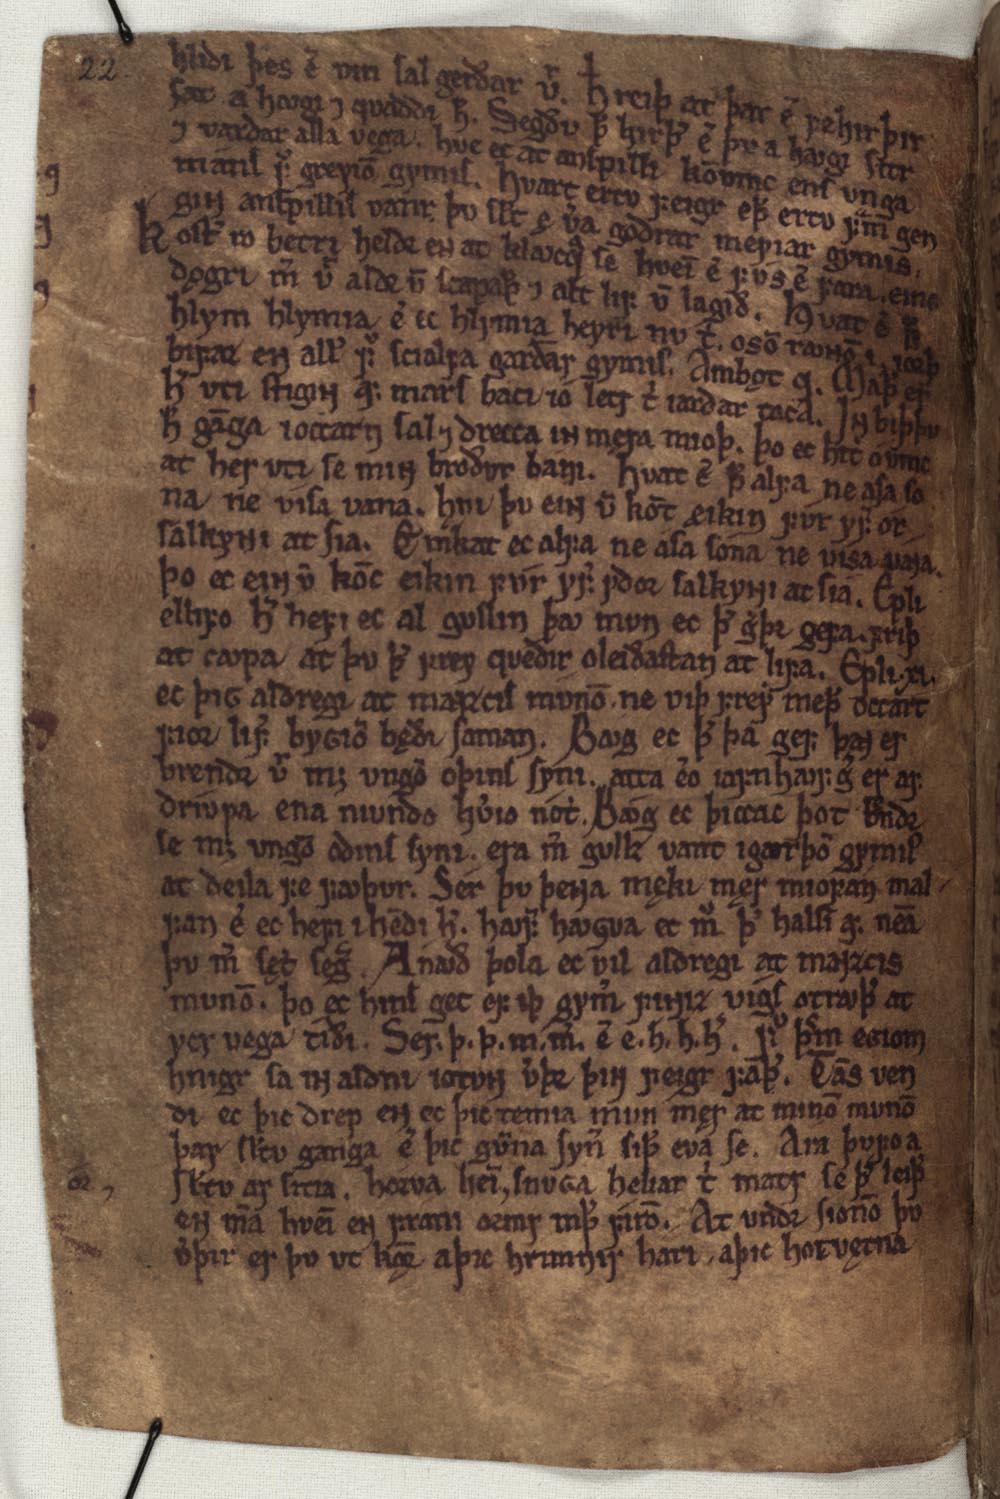 22.
hliði þes ē um sal gerðar v̄. hreiþ at þar ē fehirþir
sat a hꜹgi ⁊ qvaddi h̄. Segðu þ̄ hirþ̄ ē þu a hꜹgi sitr
⁊ varðar alla vega. hve ec at anspilli kōmc ens unga
mans ꝼ̄ greyiō gymis. Hvart ertu ꝼeigr eþ̄ ertu ꝼ̄m gen
gin anspillis vanr þu sc̄t ę v̄a góðrar meyiar gymis.
Kostr ro betri heldr en at klꜹcqa se hveī ē ꝼus ē ꝼara. eino
dǫgri m̄ v̄ aldr v̄ scapaþ̄ ⁊ alt liꝼ v̄ lagið. Hvat ē þ̄
hlym hlymia ē ec hlymia heyri nu t̄. osō rꜹnō i iorþ
biꝼaz en all̄ ꝼ̄ scialꝼa garðar gymis. Ambǫt q̄. Maþ̄ er
h̄ uti stigiɴ aꝼ mars baci ió lętr t̄ iarðar taca. Iɴ biþþu
h̄ gāga i occarn sal ⁊ drecca iɴ męra mioþ. þo ec hit oūmc
at her uti se miɴ broður bani. Hvat ē þ̄ alꝼa ne asa so
na ne visa vana. hvi þu eiɴ v̄ kōt eikiɴ ꝼur yꝼ̄ ór
salkyɴi at sia. Emkat ec alꝼa ne asa sona ne visa vana.
þo ec eiɴ v̄ kōc eikin ꝼur yꝼ̄ yðor salkyɴi at sia. Epli
elliꝼo h̄ heꝼi ec al gullin þꜹ mun ec þ̄ geꝼa. ꝼriþ
at cꜹpa at þu þ̄ ꝼrey qveðir oleiðastan at liꝼa. Epli .xi.
ec þigg aldregi at mannzcis munō. ne viþ ꝼreyr meþ̄ occart
ꝼior liꝼ̄ byggiō bęði saman. Bꜹg ec þ̄ þá geꝼ þaɴ er
brendr v̄ mꝫ ungō oþins syni. atta ēo iaꝼnhaꝼḡ er aꝼ
driupa ena niundo hv̄io nótt. Bꜹg ec þiccac þot br̄ndr
se mꝫ ungō oðins syni. era m̄ gullz vant i gǫrþō gymis
at deila ꝼe ꝼꜹþur. Sér þu þeɴa męki męr miofan mal
ꝼan ē ec heꝼi i hēdi h̄. hꜹꝼ̄ hꜹgva ec m̄ þ̄ halsi aꝼ nēa
þu m̄ sętt seḡ. Anꜹð þola ec vil aldregi at mannzcis
munō. þo ec hins get eꝼ iþ gym̄ ꝼiɴiz vigs otrꜹþ̄ at
ycr vega tiði. Ser. þ. þ. m. m. ē e. h. h. h̄. ꝼ̄ þ̄m eggiom
hnigr sa iɴ aldni iotuɴ v̄þr þiɴ ꝼeigr ꝼaþ̄. Tāsven
di ec þic drep en ec þic temia mun męr at minō munō
þar scltu ganga ē þic gūna syn̄ siþ̄ eva se. Ara þuꝼo a
scltu ar sitia. horꝼa heī, snugga heliar t̄ matr se þ̄ leiþ̄
en ma hveī en ꝼrani ormr mþ̄ ꝼirō. At undr siónō þu
v̄þir er þu ut kǫr aþic hrimnir hari, aþic hotvętna